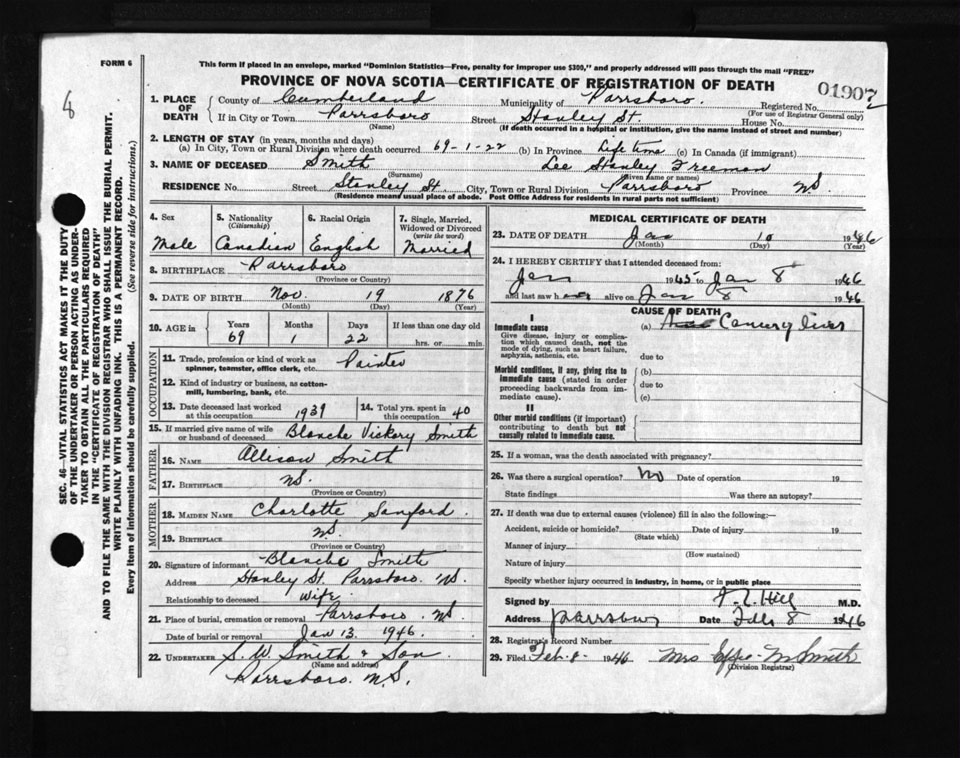 FORM 6
This form if placed in an envelope, marked "Dominion Statistics—Free, penalty for improper use $300," and properly addressed will pass through the mail "FREE"
PROVINCE OF NOVA SCOTIA—CERTIFICATE OF REGISTRATION OF DEATH
01907
8
SEC. 46—VITAL STATISTICS ACT MAKES IT THE DUTY
OF THE UNDERTAKER OR PERSON ACTING AS UNDER-
TAKER TO OBTAIN ALL THE PARTICULARS REQUIRED
IN THE "CERTIFICATE OF REGISTRATION OF DEATH"
AND TO FILE THE SAME WITH THE DIVISION REGISTRAR WHO SHALL ISSUE THE BURIAL PERMIT.
WRITE PLAINLY WITH UNFADING INK. THIS IS A PERMANENT RECORD.
Every item of information should be carefully supplied. (See reverse side for instructions.)
1. PLACE OF DEATH
County of Cumberland Municipality of Parrsboro. Registered No.
(For use of Registrar General only)
If in City or Town Parrsboro Street Stanley St. House No.
(Name) (If death occurred in a hospital or institution, give the name instead of street and number)
2. LENGTH OF STAY (in years, months and days)
(a) In City, Town or Rural Division where death occurred 69-1-22 (b) In Province Life time (c) In Canada (if immigrant)
3. NAME OF DECEASED Smith Lee Stanley Freeman
(Surname) (Given name or names)
RESIDENCE No. Street Stanley St. City, Town or Rural Division Parrsboro Province N.S.
(Residence means usual place of abode. Post Office Address for residents in rural parts not sufficient)
4. Sex
Male
5. Nationality
(Citizenship)
Canadian
6. Racial Origin
English
7. Single, Married,
Widowed or Divorced
(write the word)
Married
8. BIRTHPLACE Parrsboro
(Province or Country)
9. DATE OF BIRTH Nov. 19 1876
(Month) (Day) (Year)
10. AGE in
Years Months Days If less than one day old
69 1 22 hrs. or min.
OCCUPATION
11. Trade, profession or kind of work as Painter
spinner, teamster, office clerk, etc.
12. Kind of industry or business, as cotton-
mill, lumbering, bank, etc.
13. Date deceased last worked
at this occupation 1939
14. Total yrs. spent in
this occupation 40
15. If married give name of wife
or husband of deceased Blanche Vickery Smith
FATHER
16. NAME Allison Smith
17. BIRTHPLACE N.S.
(Province or Country)
MOTHER
18. MAIDEN NAME Charlotte Sanford.
19. BIRTHPLACE N.S.
(Province or Country)
20. Signature of informant Blanche Smith
Address Stanley St. Parrsboro. N.S.
Relationship to deceased wife
21. Place of burial, cremation or removal Parrsboro. N.S
Date of burial or removal Jan 13. 1946.
22. UNDERTAKER S. W. Smith & Son.
(Name and address)
Parrsboro. N.S.
MEDICAL CERTIFICATE OF DEATH
23. DATE OF DEATH Jan 10 1946
(Month) (Day) (Year)
24. I HEREBY CERTIFY that I attended deceased from:
Jan 1945 to Jan 8 1946
and last saw h alive on Jan 8 1946
CAUSE OF DEATH
I
Immediate cause
Give disease, injury or complica-
tion which caused death, not the
mode of dying, such as heart failure,
asphyxia, asthenia, etc.
(a) liver
due to
Morbid conditions, if any, giving rise to
immediate cause (stated in order
proceeding backwards from im-
mediate cause).
(b)
due to
(c)
II
Other morbid conditions (if important)
contributing to death but not
causally related to immediate cause.
25. If a woman, was the death associated with pregnancy?
26. Was there a surgical operation? No Date of operation 19
State findings Was there an autopsy?
27. If death was due to external causes (violence) fill in also the following:—
Accident, suicide or homicide? Date of injury 19
(State which)
Manner of injury
(How sustained)
Nature of injury
Specify whether injury occurred in industry, in home, or in public place
Signed by Hill M.D.
Address Parrsboro Date Feb 8 1946
28. Registrar's Record Number
29. Filed Feb. 8- 1946 Mrs Effie M Smith
(Division Registrar)